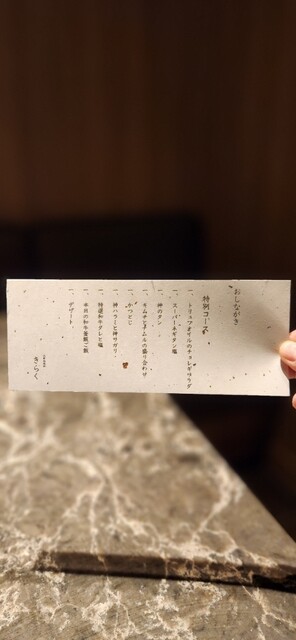 おしながき
特別コース
一、トリュフオイルのチョレギサラダ
一、スーパーネギタン塩
一、神のタン
一、キムチとナムルの盛り合わせ
一、かつとじ
一、神ハラミと神サガリ
一、特選和牛ダレと塩
一、本日の和牛釜飯ご飯
一、デザート
きらく